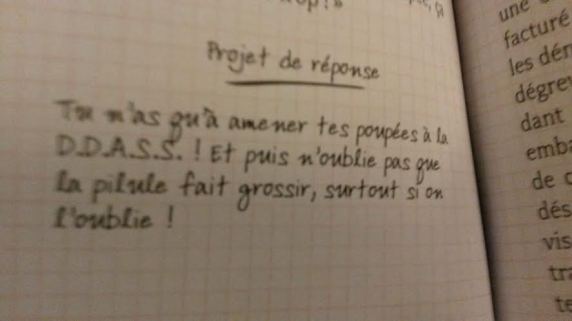 Projet de réponse
Tu n'as qu'à amener tes poupées à la
D.D.A.S.S. ! Et puis n'oublie pas que
la pilule fait grossir, surtout si on
l'oublie !
une
facturé
les dém
dégrev
dant
emba
de c
dés
vis
tra
te